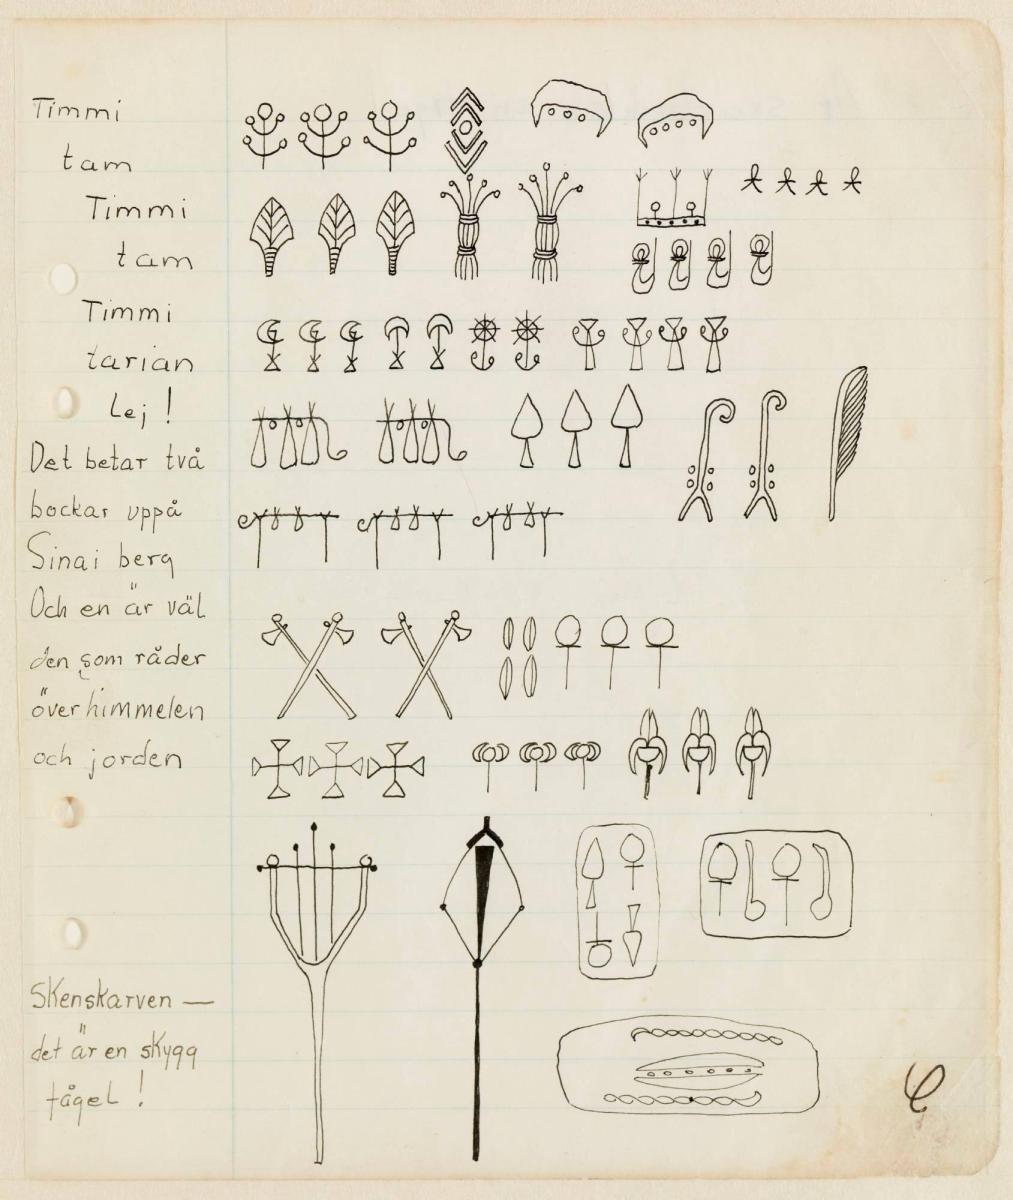 Timmi
tam
Timmi
tam
Timmi
tarian
Lej!
Det betar två
bockar uppå
Sinai berg
Och en är väl
den som råder
över himmelen
och jorden
Skenskarven —
det är en skygg
fågel!